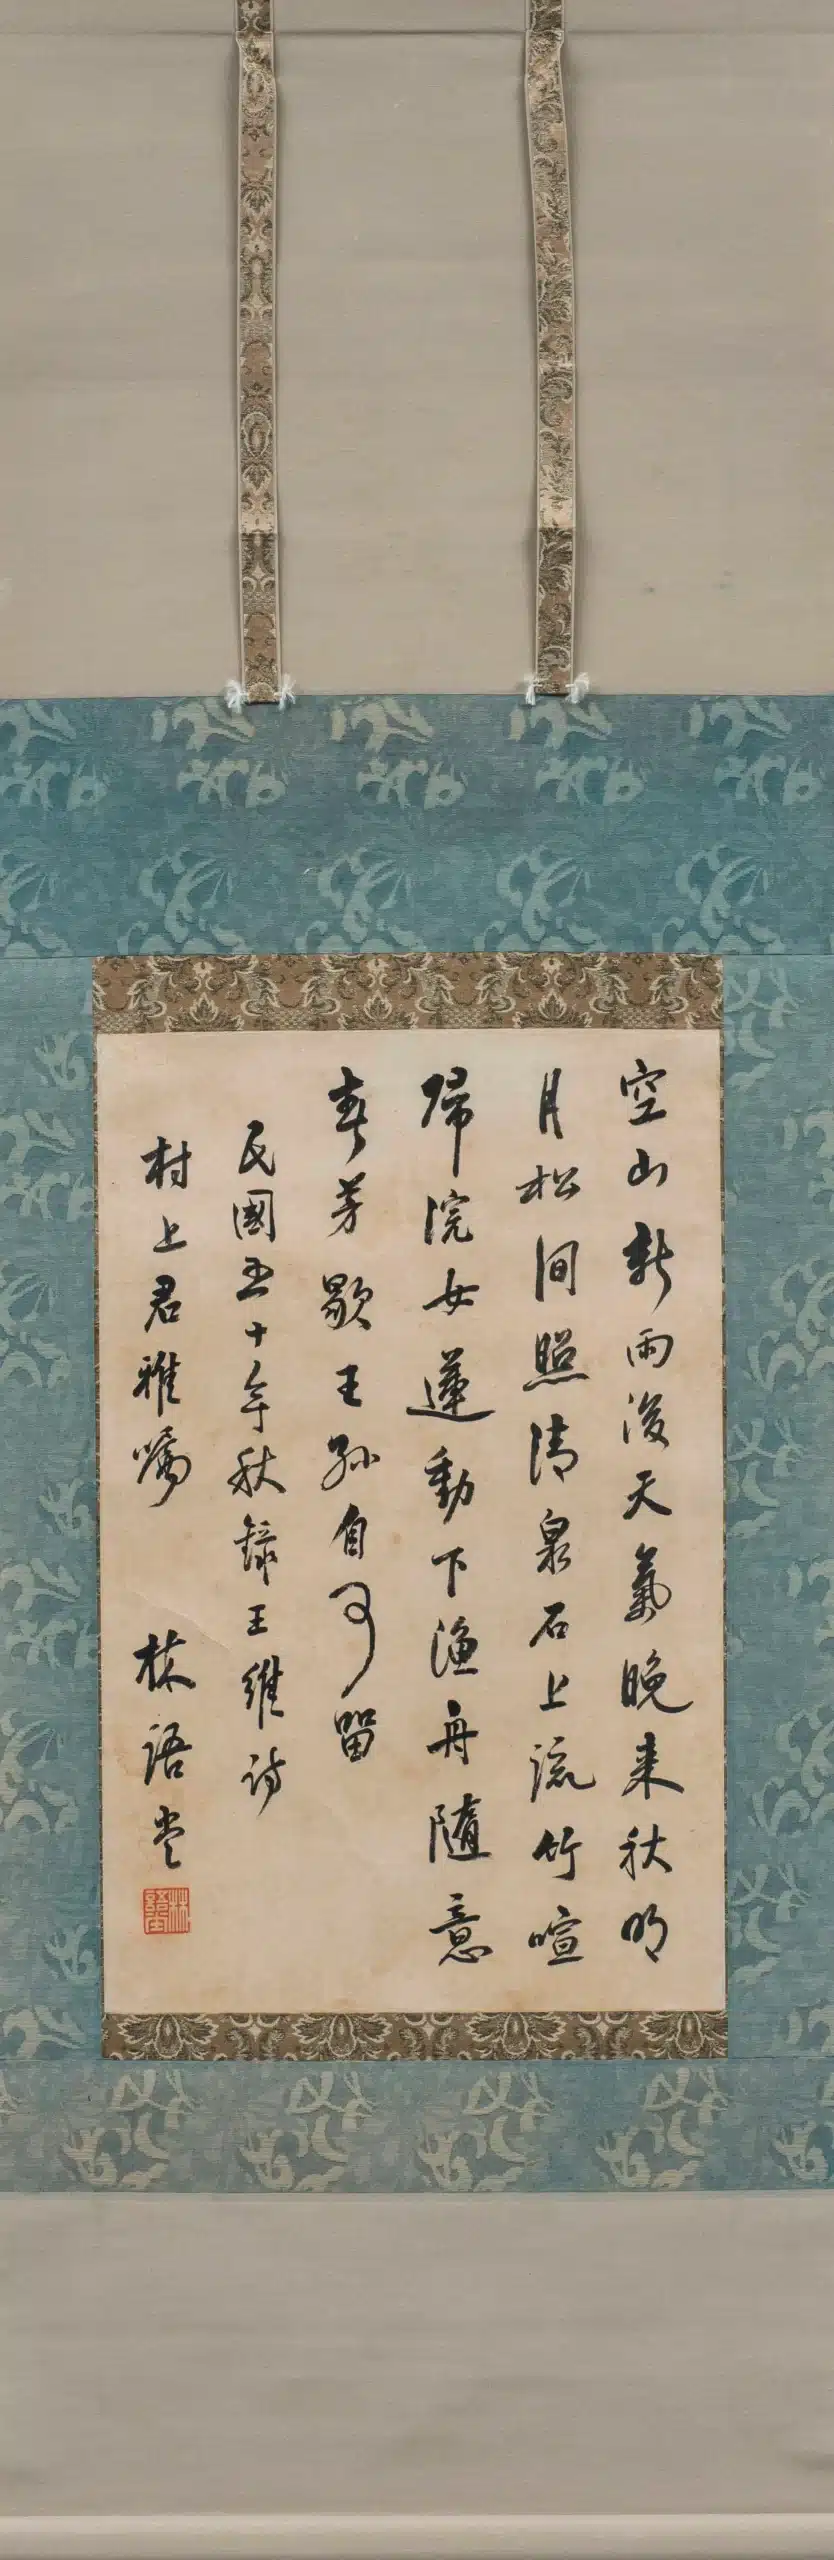 空山新雨後天氣晚来秋明
月松间照清泉石上流竹喧
歸浣女蓮動下漁舟隨意
春芳歇王孫自可留
民國五十年秋錄王維詩
村上君雅囑 林語堂
林語堂